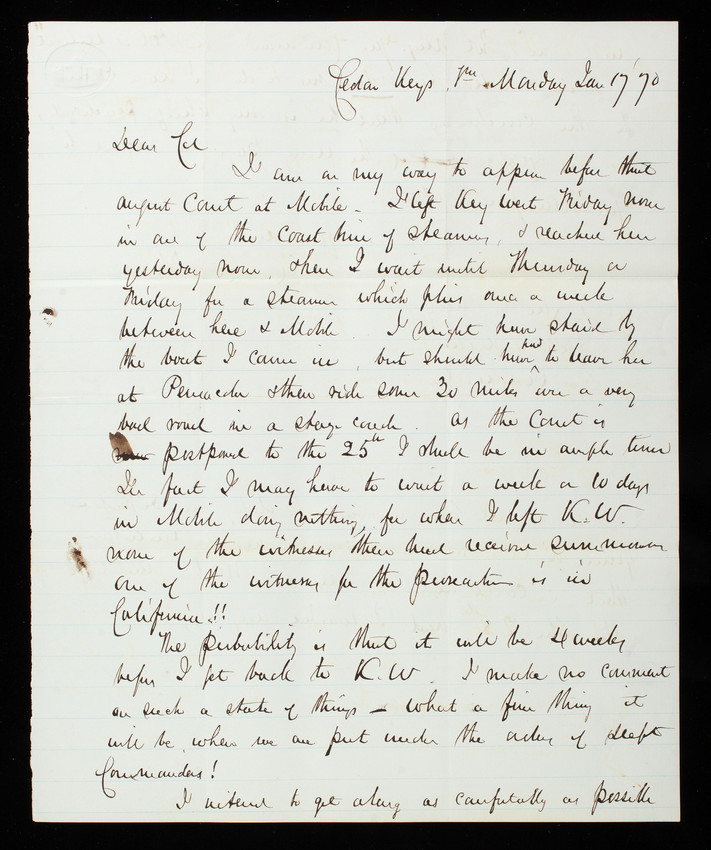 Cedar Keys, Fla. Monday Jan 17 '70
Dear Col
I am on my way to appear before that
august Court at Mobile - I left Key West Friday noon
in one of the Coast line of steamers, & reached here
yesterday noon, & here I wait until Thursday or
Friday for a steamer which plies once a week
between here & Mobile. I might have staid by
the boat I came in, but should have had to leave her
at Pensacola & then ride some 30 miles over a very
bad road in a stage coach. As the Court is
postponed to the 25th I shall be in ample time
In fact I may have to wait a week or 10 days
in Mobile doing nothing, for when I left K.W.
none of the witnesses there had received summons
one of the witnesses for the prosecution is in
California!!
The probability is that it will be 4 weeks
before I get back to K.W. I make no comment
on such a state of things - what a fine thing it
will be, when we are put under the orders of Dept
Commanders!
I intend to get along as comfortably as possible